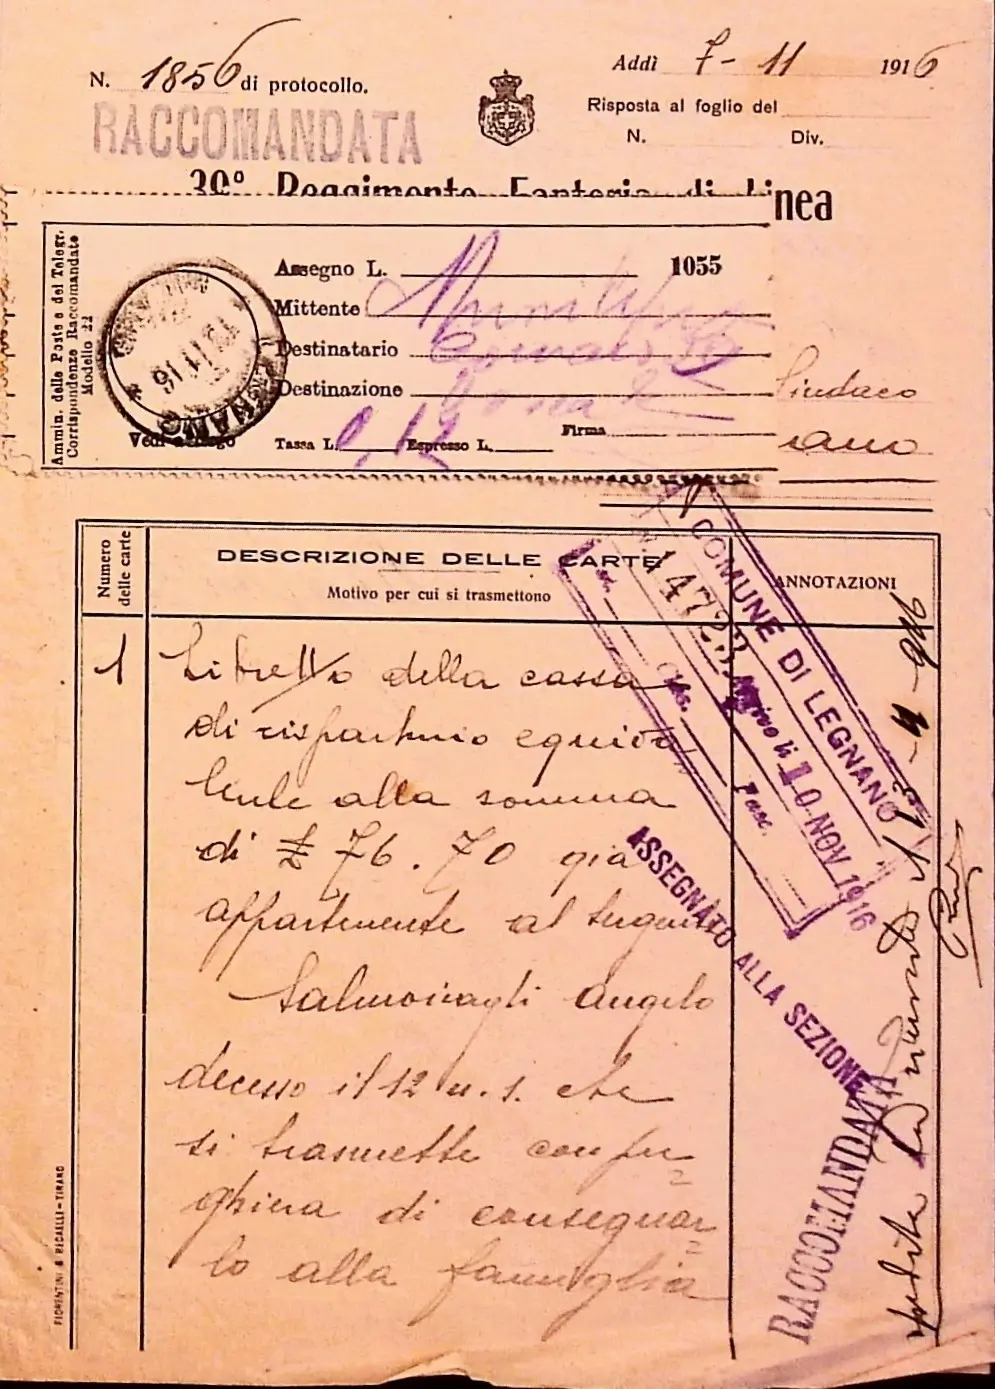 N. 1856 di protocollo.
Addì 7 - 11 1916
Risposta al foglio del
N. Div.
RACCOMANDATA
30º Reggimento Fanteria di Linea
Ammin. delle Poste e dei Telegr.
Corrispondenze Raccomandate
Modello 22
Assegno L. 1055
Mittente
Destinatario
Destinazione
Vedi a tergo
Tassa L. 0,12 Espresso L.
Firma
Sindaco
nano
LEGNANO
16
Numero delle carte
DESCRIZIONE DELLE CARTE
Motivo per cui si trasmettono
ANNOTAZIONI
1
Libretto della cassa
di risparmio equiva
lente alla somma
di £ 76.70 già
appartenente al sergente
Salmoiraghi Angelo
decesso il 12 u.s. che
si trasmette con pre
ghiera di consegnar
lo alla famiglia
COMUNE DI LEGNANO
N. 14723
Arrivo li 10 NOV 1916
ASSEGNATO ALLA SEZIONE
RACCOMANDATA
FIORENTINI & REGAELLI - TIRANO